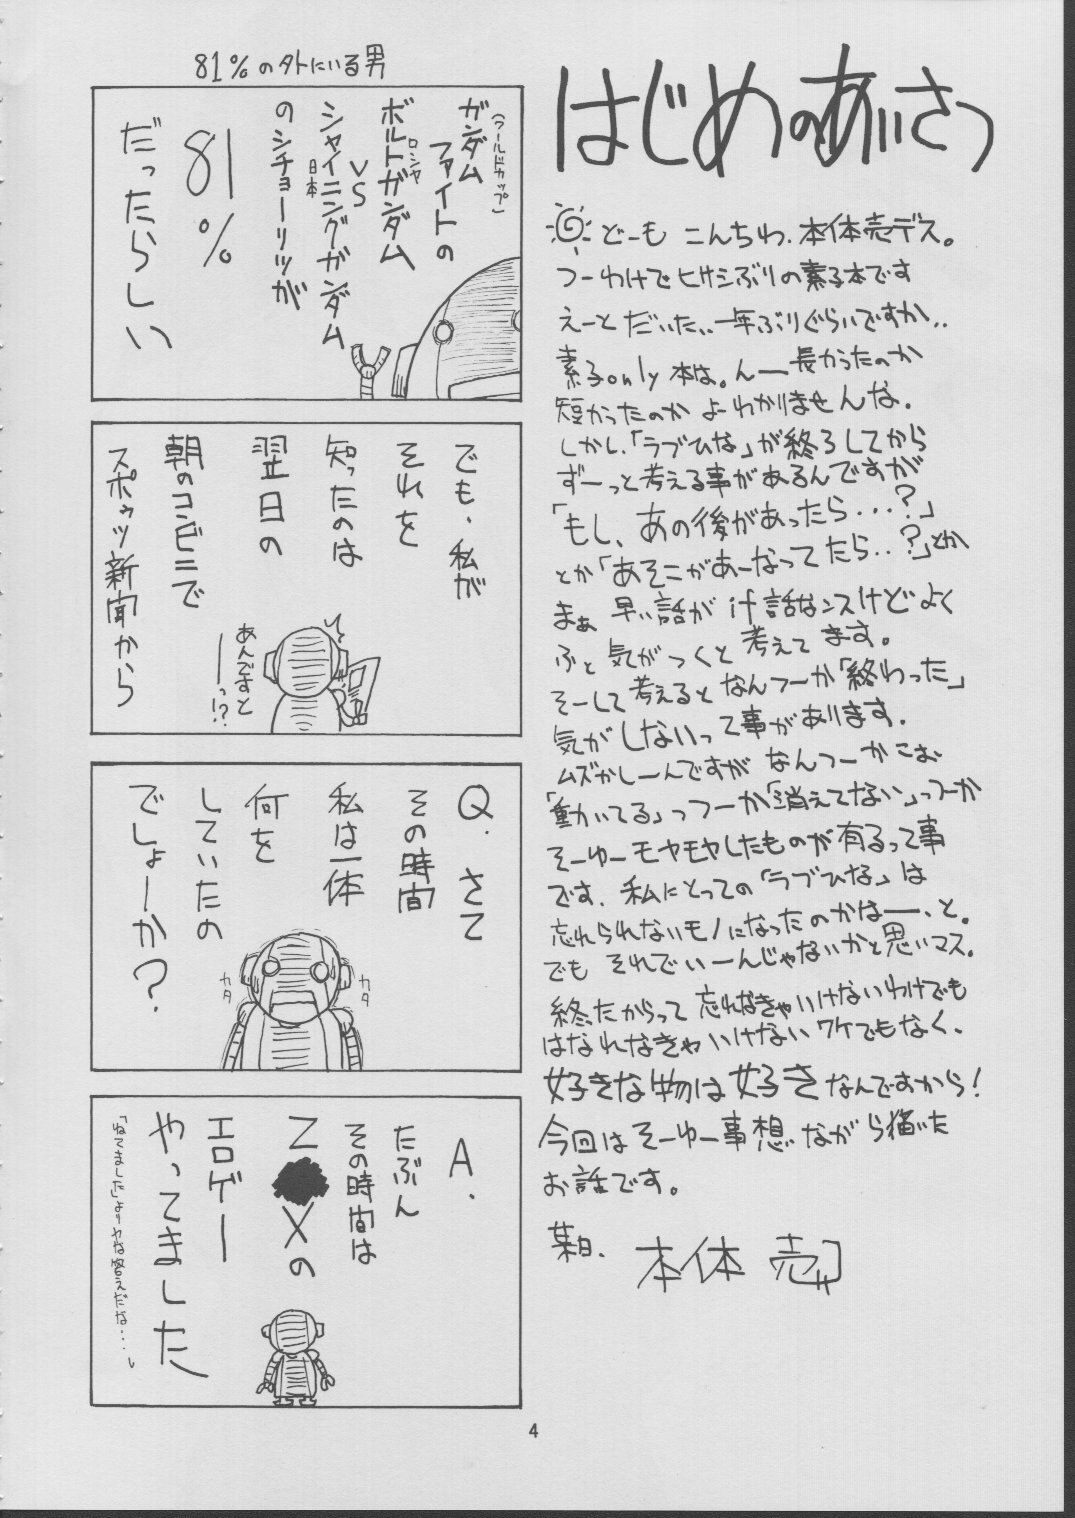 はじめのあいさつ
どーも こんちわ、本体売デス。
つーわけでヒサシぶりの素子本です
えーと だいたい一年ぶりぐらいですか..
素子only本は。んー長かったのか
短かったのか よーわかりませんな.
しかし、「ラブひな」が終ろしてから
ずーっと考える事があるんですが
「もし、あの後があったら・・・?」
とか「あそこがあーなってたら・・?」とか
まぁ 早い話が if話なンスけどよく
ふと気がつくと考えてます。
そーして考えるとなんつーか「終わった」
気がしないって事があります.
ムズかしーんですが なんつーかこお
「動いてる」っつーか「消えてない」っつーか
そーゆーモヤモヤしたものが有るって事
です. 私にとっての「ラブひな」は
忘れられないモノになったのかなー、と。
でも それでいーんじゃないかと思いマス.
終ったからって 忘れなきゃいけないわけでも
はなれなきゃいけないワケでもなく、
好きな物は好きなんですから!
今回はそーゆー事想いながら描いた
お話です。
某日、 本体 売
81%のタトにいる男
(ワールドカップ)
ガンダム
ファイトの
ロシヤ
ボルトガンダム
VS
日本
シャイニングガンダム
のシチョーリツが
81%
だったらしい
でも、私が
それを
知ったのは
翌日の
朝のコンビニで
スポゥツ新聞から
あんですと
ーっ!?
Q. さて
その時間
私は一体
何を
していたの
でしょーか?
カタ
カタ
A.
たぶん
その時間は
Z Xの
エロゲー
やってました
「ねてました」よりヤな答えだな・・・
4